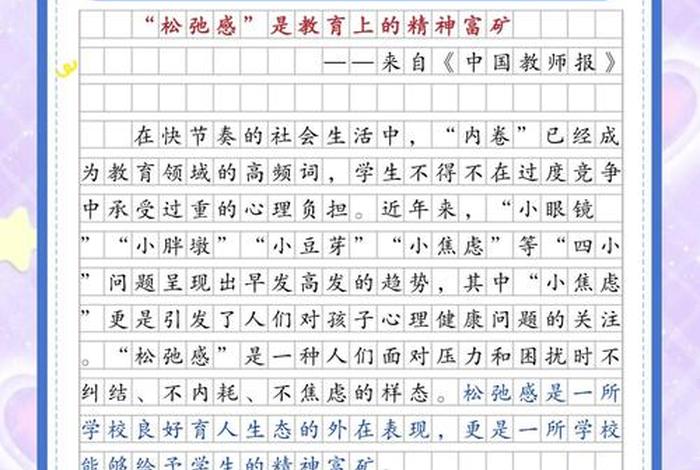 “松弛感”是教育上的精神富矿
——来自《中国教师报》
在快节奏的社会生活中，“内卷”已经成
为教育领域的高频词，学生不得不在过度竞争
中承受过重的心理负担。近年来，“小眼镜
”“小胖墩”“小豆芽”“小焦虑”等“四小
”问题呈现出早发高发的趋势，其中“小焦虑
”更是引发了人们对孩子心理健康问题的关注
。“松弛感”是一种人们面对压力和困扰时不
纠结、不内耗、不焦虑的样态。松弛感是一所
学校良好育人生态的外在表现，更是一所学校
能够给予学生的精神富矿。